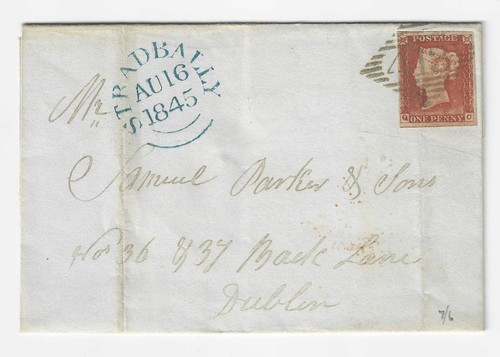 STRADBALLY
AU16
1845
POSTAGE
ONE PENNY
Mr
Samuel Parker & Sons
Nos 36 & 37 Back Lane
Dublin
7/6